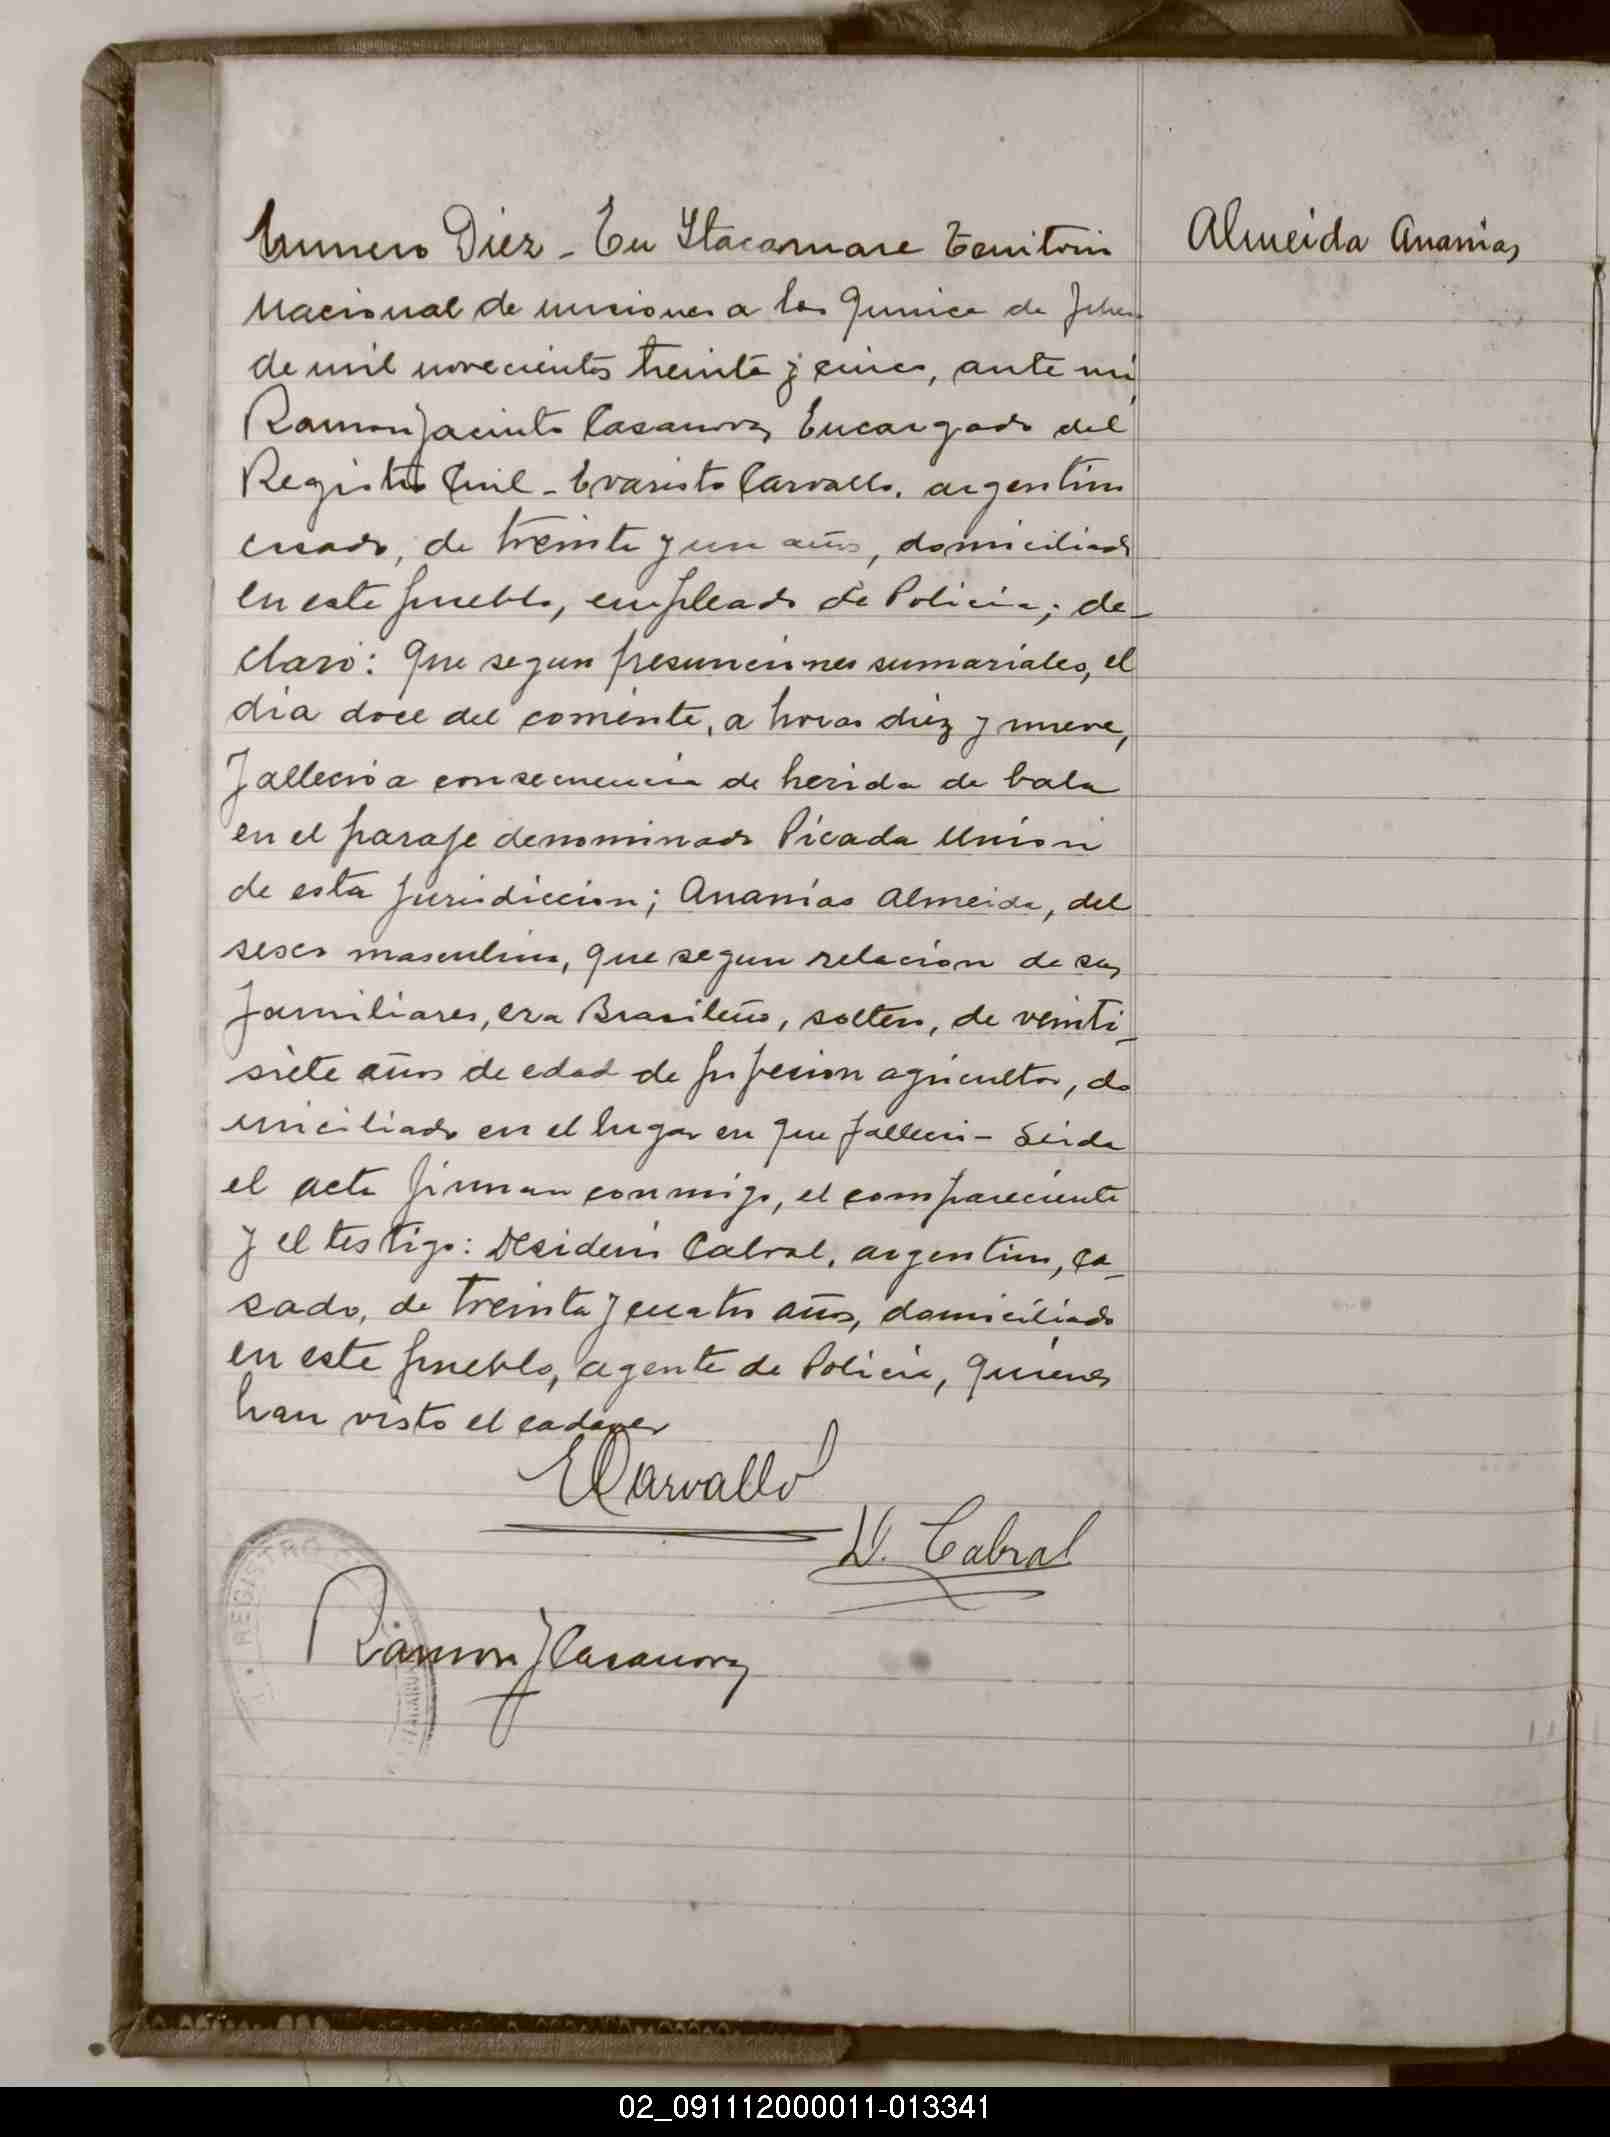 Numero Diez - En Itacaruare Territorio
Almeida Ananias
Nacional de Misiones a los quince de Febrero
de mil novecientos treinta y cinco, ante mi
Ramon Jacinto Casanova Encargado del
Registro Civil - Evaristo Carvallo, argentino
casado, de treinta y un años, domiciliado
en este pueblo, empleado de Policia; de-
claró: Que segun presunciones sumariales, el
dia doce del corriente, a horas diez y nueve,
fallecio a consecuencia de herida de bala
en el paraje denominado Picada Union
de esta jurisdiccion; Ananias Almeida, del
sexo masculino, que segun relacion de sus
familiares, era Brasileño, soltero, de veinti-
siete años de edad de profesion agricultor, do
miciliado en el lugar en que fallecio - Leida
el acta firman conmigo, el compareciente
y el testigo: Desiderio Cabral, argentino, ca-
sado, de treinta y cuatro años, domiciliado
en este pueblo, agente de Policia, quienes
han visto el cadaver
E Carvallo
D. Cabral
REGISTRO
Ramon J Casanova
02_091112000011-013341